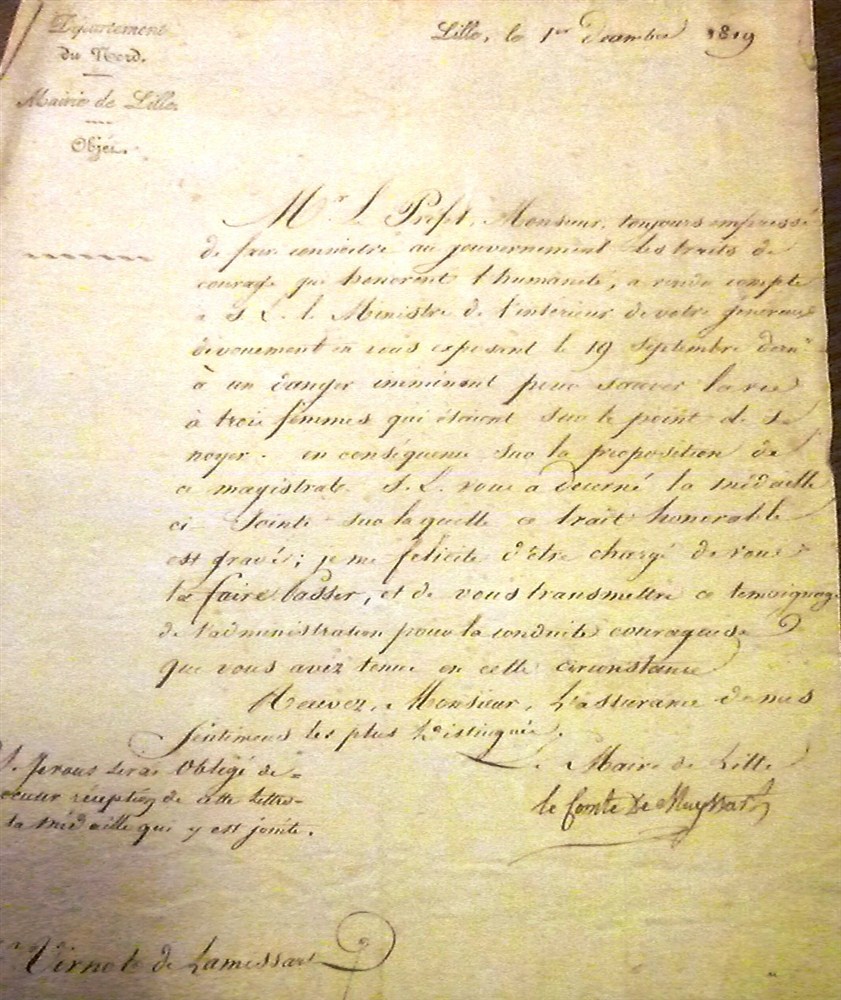 Département
du Nord.
Mairie de Lille
Objet.
Lille, le 1er Decembre 1819
Mr Le Préfet, Monsieur, toujours empressé
de faire connoitre au gouvernement les traits de
courage qui honorent l'humanité, a rendu compte
a S. E. le Ministre de l'intérieur de votre généreux
dévouement en vous exposant le 19 Septembre dern.
à un danger imminent pour sauver la vie
à trois femmes qui étaient sur le point de se
noyer. en conséquence sur la proposition de
ce magistrat S. E. vous a décerné la médaille
ci Jointe sur laquelle ce trait honorable
est gravé; je me felicite d'être chargé de vous
la faire passer, et de vous transmettre ce temoignage
de l'administration pour la conduite courageuse
que vous avez tenue en cette circonstance
Recevez, Monsieur, L'assurance de mes
Sentimens les plus Distingués.
Le Maire de Lille
le Comte De Muyssart
Je vous serai Obligé de
réception de cette lettre
la médaille qui y est jointe.
Virnot de Lamissart